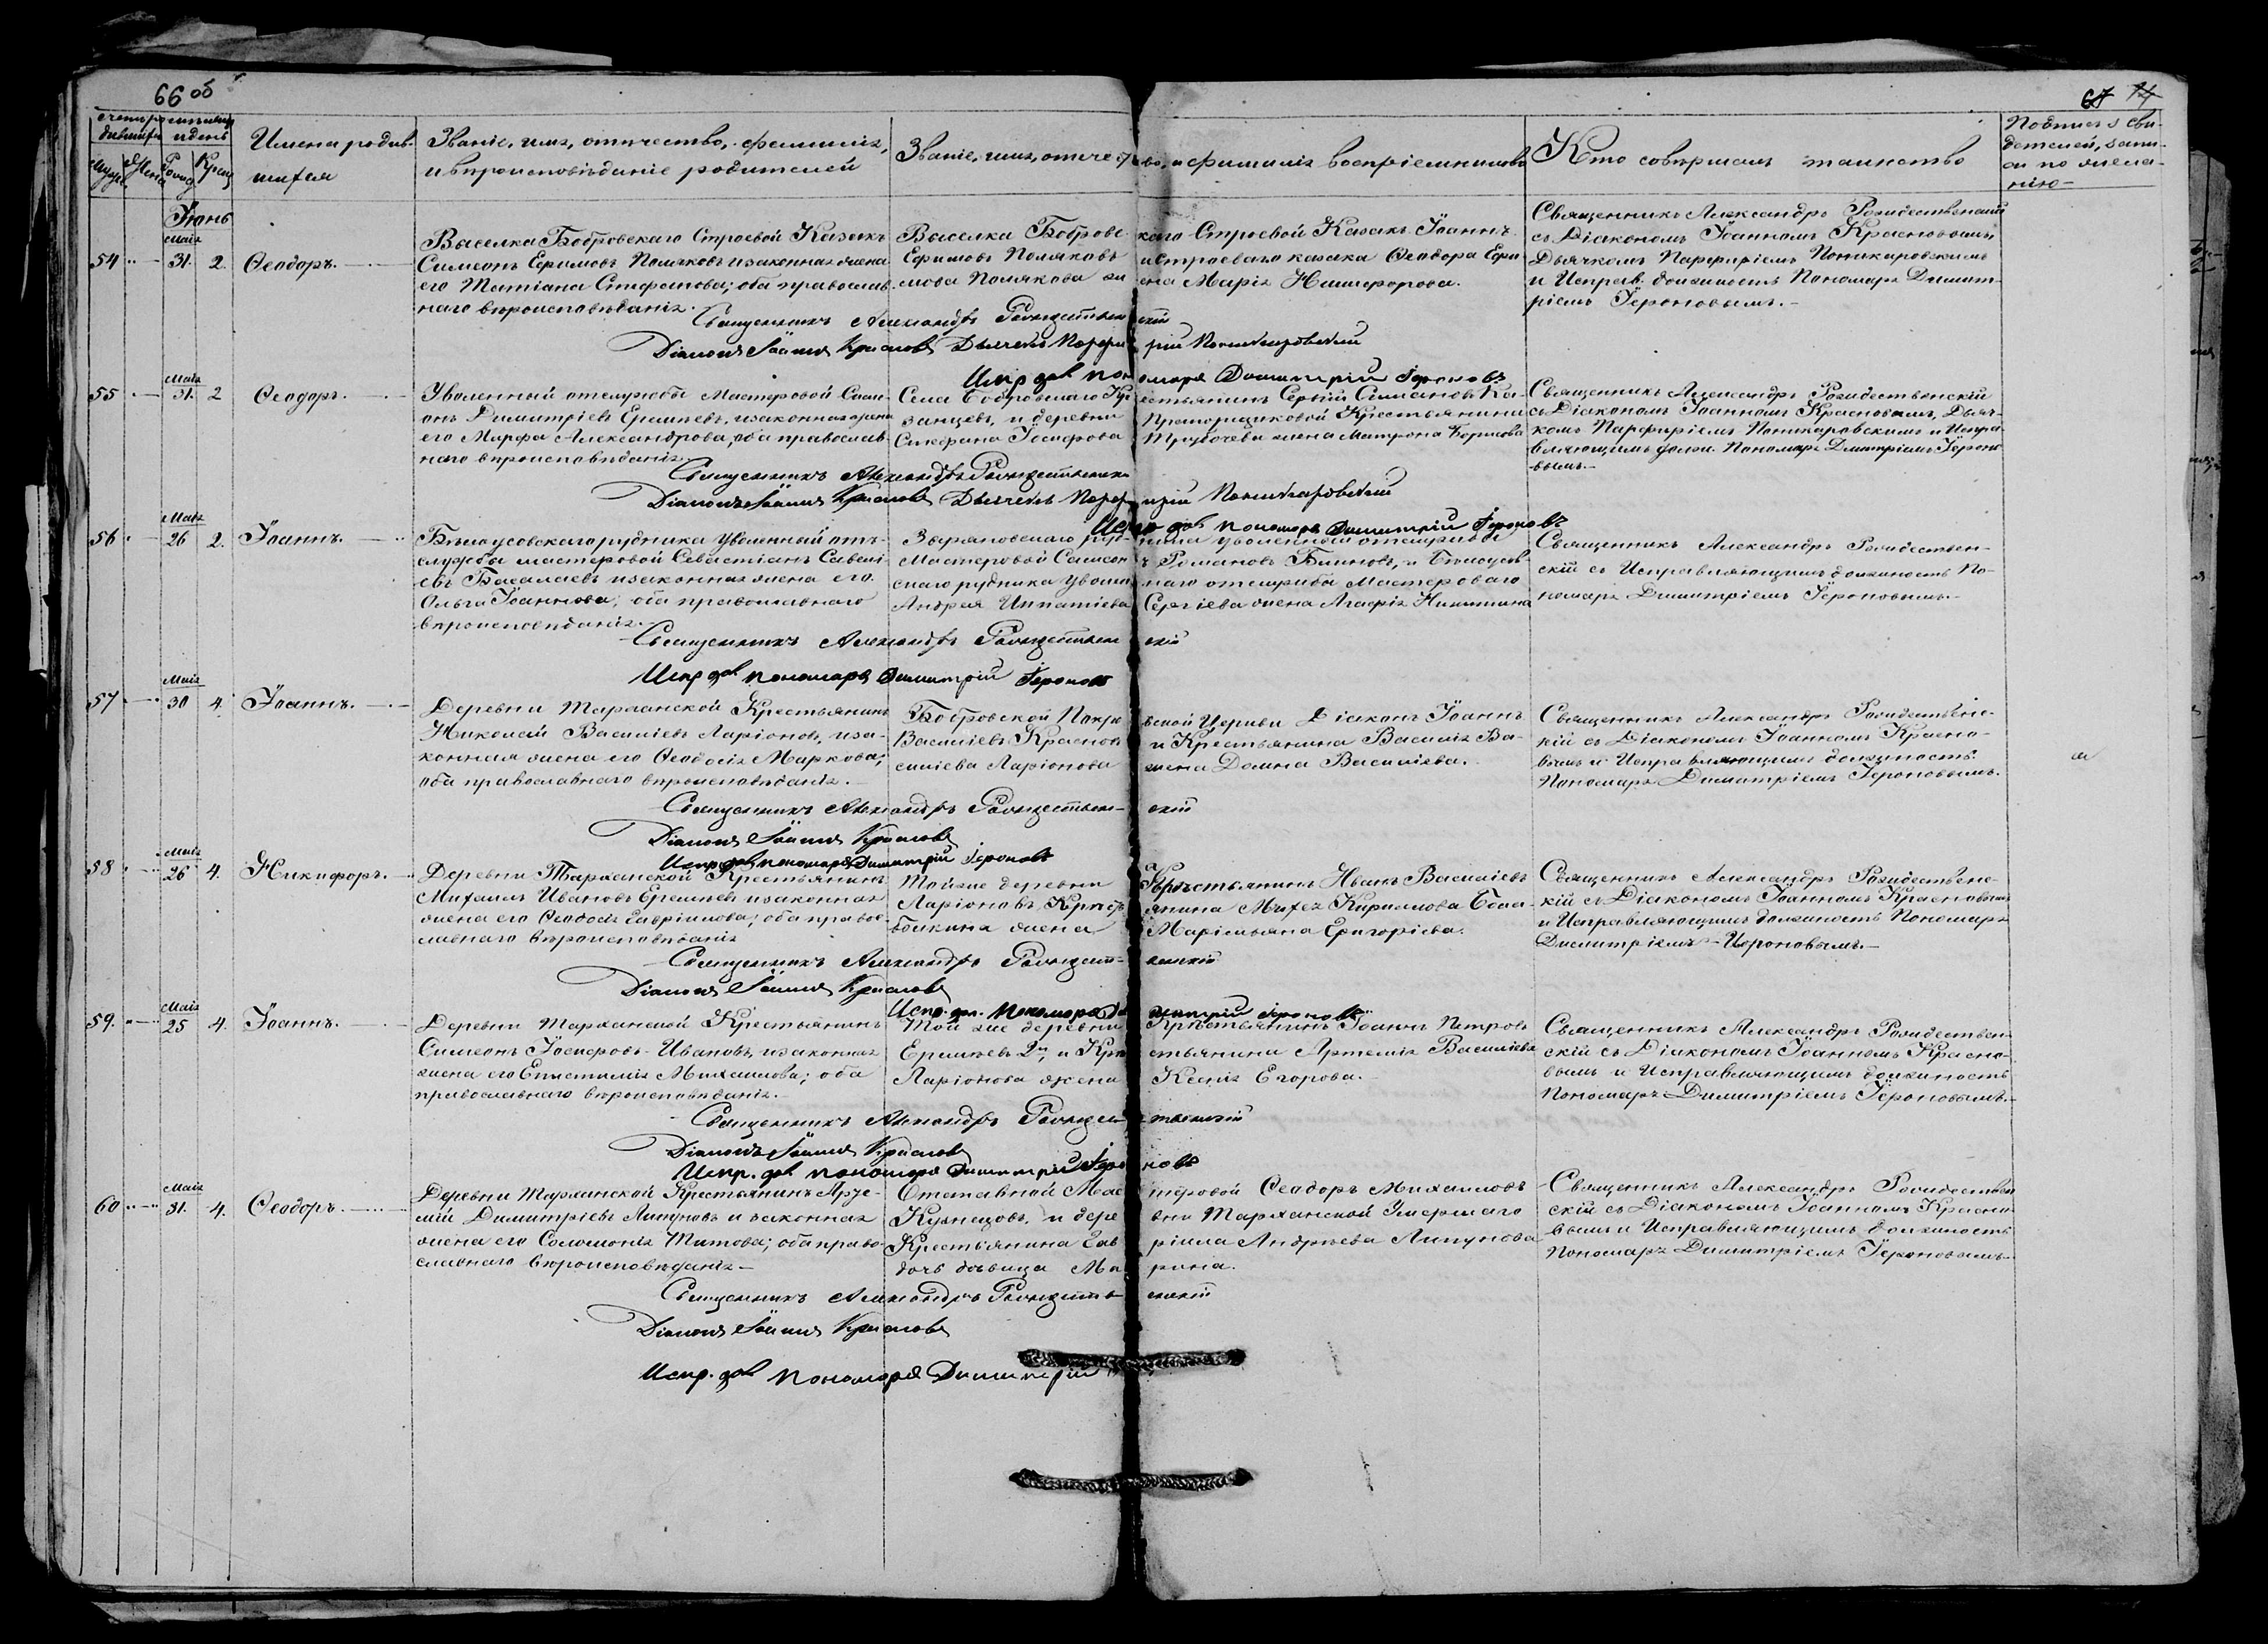 66 об
67 74
Счетъ родившихся
Мѣсяцъ и день
Имена родившихся
Званіе, имя, отчество, фамилія, и вѣроисповѣданіе родителей
Званіе, имя, отчество, и фамилія воспріемниковъ
Кто совершалъ таинство
Подпись свидѣтелей записи по желанію
Іюнь
54
Мая
31. 2.
Ѳеодоръ.
Выселка Бобровскаго Строевой Казакъ
Симеонъ Ефимовъ Поляковъ и законная жена
его Татіана Стефанова; оба православ-
наго вѣроисповѣданія.
Выселка Бобровскаго Строевой Казакъ Іоаннъ
Ефимовъ Поляковъ и строеваго казака Ѳеодора Ефи-
мова Полякова жена Марія Никифорова.
Священникъ Александръ Рождественскій
съ Діакономъ Іоанномъ Красновымъ,
Дьячкомъ Парфиріемъ Поникаровскимъ
и Исправ. должность Пономаря Димит-
ріемъ Іероновымъ.
Священникъ Александръ Рождественскій
Діаконъ Іоаннъ Красновъ Дьячекъ Порфирій Поникаровский
Испр дол пономаря Димитрий Іероновъ
55
Мая
31. 2
Ѳеодоръ.
Уволенный отслужбы Мастеровой Симе-
онъ Димитріевъ Ершневъ, и законная жена
его Марфа Александрова, оба православ-
наго вѣроисповѣданія.
Села Бобровскаго Крестьянинъ Сергій Симановъ Ка-
занцевъ, и деревни Прапорщиковой Крестьянина
Стефана Іосифова Трубачева жена Матрона Борисова
Священникъ Александръ Рождественскій
съ Діакономъ Іоанномъ Красновымъ, Дьяч-
комъ Парфиріемъ Поникаровскимъ и Испра-
вляющимъ долж. Пономаря Димитріемъ Іероно-
вымъ.
Священникъ Александръ Рождественскій
Діаконъ Іоаннъ Красновъ Дьячекъ Порфирій Поникаровский
Испр дол пономаря Димитрий Іероновъ
56
Мая
26 2.
Іоаннъ.
Бѣлоусовскаго рудника уволенный отъ
службы мастеровой Севастіанъ Савель-
евъ Басалаевъ и законная жена его
Ольга Іоаннова; оба православнаго
вѣроисповѣданія.
Зыряновскаго рудника уволенный отслужбы
Мастеровой Симеонъ Романовъ Блиновъ, и Бѣлоусов-
скаго рудника уволеннаго отслужбы Мастероваго
Андрея Ипатіева Сергіева жена Агафія Никитина
Священникъ Александръ Рождествен-
скій съ Исправляющимъ должность По-
номаря Димитріемъ Іероновымъ.
Священникъ Александръ Рождественскій
Испр дол пономаря Димитрій Іероновъ
57
Мая
30 4.
Іоаннъ.
Деревни Тарханской Крестьянинъ
Николай Василіевъ Ларіоновъ, и за-
конная жена его Ѳеодосія Маркова;
оба православнаго вѣроисповѣданія.
Бобровской Покровской Церкви Діаконъ Іоаннъ
Василіевъ Красновъ и Крестьянина Василія Ва-
силіева Ларіонова жена Домна Василіева.
Священникъ Александръ Рождественс-
кій съ Діакономъ Іоанномъ Красно-
вымъ и Исправляющимъ должность
Пономаря Димитріемъ Іероновымъ.
Священникъ Александръ Рождественскій
Діаконъ Іоаннъ Красновъ
Испр дол пономаря Димитрій Іероновъ
58
Мая
26 4.
Никифоръ.
Деревни Тарханской Крестьянинъ
Михаилъ Ивановъ Ершневъ и законная
жена его Ѳеодосія Гавріилова; оба право-
славнаго вѣроисповѣданія
Тойже деревни Крестьянинъ Иванъ Василіевъ
Ларіоновъ, Крестьянина
жена Маріамьяна Григоріева.
Священникъ Александръ Рождественс-
кій съ Діакономъ Іоанномъ Красновымъ
и Исправляющимъ должность Пономаря
Димитріемъ Іероновымъ.
Священникъ Александръ Рождественскій
Діаконъ Іоаннъ Красновъ
Испр. дол. Пономаря Димитрій Іероновъ
59.
Мая
25 4.
Іоаннъ.
Деревни Тарханской Крестьянинъ
Симеонъ Іосифовъ Ивановъ, и законная
жена его Епистимія Михаилова; оба
православнаго вѣроисповѣданія.
Той же деревни Крестьянинъ Іоаннъ Петровъ
Ершневъ 2й, и Крестьянина Артемія Василіева
Ларіонова жена Ксенія Егорова.
Священникъ Александръ Рождествен-
скій съ Діакономъ Іоанномъ Красно-
вымъ и Исправляющимъ должность
Пономаря Димитріемъ Іероновымъ.
Священникъ Александръ Рождественскій
Діаконъ Іоаннъ Красновъ
Испр. дол пономаря Димитрій Іероновъ
60
Мая
31. 4.
Ѳеодоръ.
Деревни Тарханской Крестьянинъ Арсе-
ній Димитріевъ Липуновъ и законная
жена его Соломонія Титова; оба право-
славнаго вѣроисповѣданія
Отставной Мастеровой Ѳеодоръ Михаиловъ
Кузнецовъ, и деревни Тарханской Умершаго
Крестьянина Гавріила Андреева Липунова
дочь дѣвица Марина.
Священникъ Александръ Рождествен
скій съ Діакономъ Іоанномъ Красно-
вымъ и Исправляющимъ должность
Пономаря Димитріемъ Іероновымъ.
Священникъ Александръ Рождественскій
Діаконъ Іоаннъ Красновъ
Испр. дол пономаря Димитрій